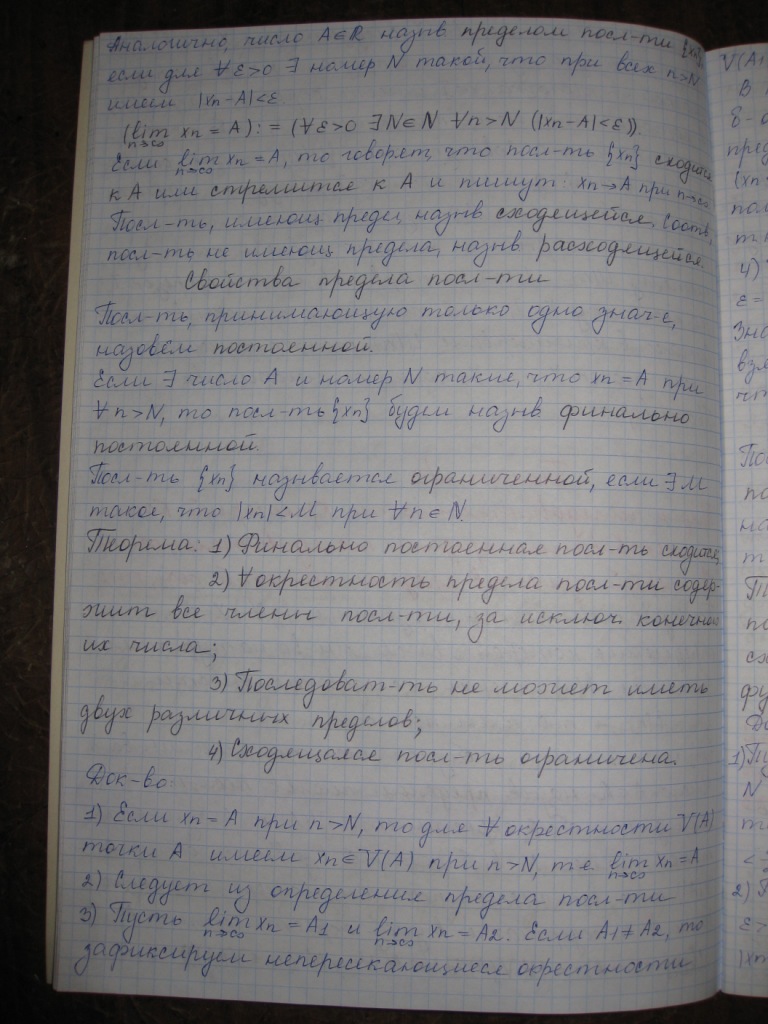 Аналогично, число A∈R назыв пределом посл-ти {xn},
если для ∀ε>0 ∃ номер N такой, что при всех n>N
имеем |xn-A|<ε.
(lim n→∞ xn = A) := (∀ε>0 ∃N∈N ∀n>N (|xn-A|<ε)).
Если lim n→∞ xn = A, то говорят, что посл-ть {xn} сходится
к A или стремится к A и пишут: xn→A при n→∞
Посл-ть, имеющ предел, назыв сходящейся. Соотв,
посл-ть не имеющ предела, назыв. расходящейся.
Свойства предела посл-ти
Посл-ть, принимающую только одно знач-е,
назовём постоянной.
Если ∃ число A и номер N такие, что xn = A при
∀n>N, то посл-ть {xn} будем назыв финально
постоянной.
Посл-ть {xn} называется ограниченной, если ∃ M
такое, что |xn|<M при ∀n∈N.
Теорема: 1) Финально постоянная посл-ть сходится;
2) ∀ окрестность предела посл-ти содер-
жит все члены посл-ти, за исключ. конечного
их числа;
3) Последоват-ть не может иметь
двух различных пределов;
4) Сходящаяся посл-ть ограничена.
Док-во:
1) Если xn = A при n>N, то для ∀ окрестности V(A)
точки A имеем xn∈V(A) при n>N, т.е. lim n→∞ xn = A
2) Следует из определения предела посл-ти
3) Пусть lim n→∞ xn = A1 и lim n→∞ xn = A2. Если A1≠A2, то
зафиксируем непересекающиеся окрестности
V(A1
4)
ε =
1) Пу
N
2)
ε>
|xn